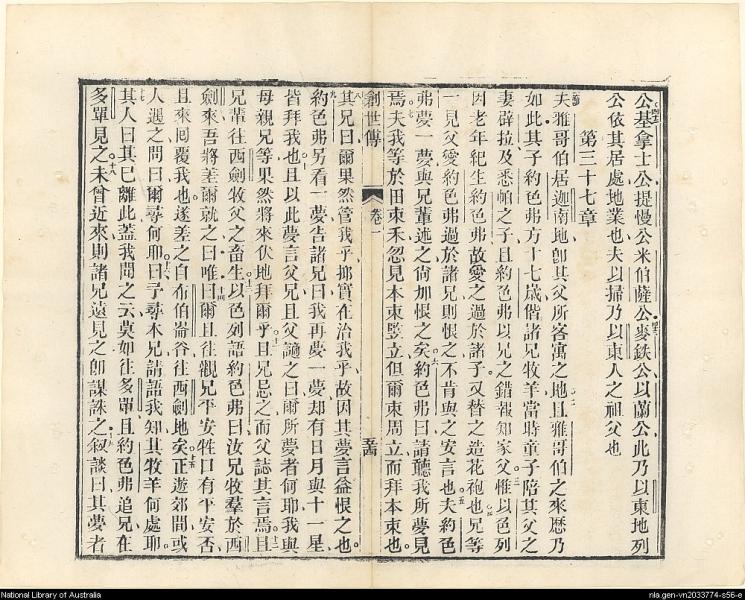 公基拿士公提慢公米伯薩公麥鉄公以蘭公此乃以東地列
公依其居處地業也夫以掃乃以東人之祖父也
第三十七章
夫雅哥伯居迦南地卽其父所客寓之地且雅哥伯之來歷乃
如此其子約色弗方十七歲偕諸兄牧羊當時童子陪其父之
妻辟拉及悉帕之子且約色弗以兄之錯報知家父惟以色列
因老年紀生約色弗故愛之過於諸子又替之造花袍也兄等
一見父愛約色弗過於諸兄則恨之不肯與之安言也夫約色
弗夢一夢與兄輩述之尙加恨之矣約色弗曰請聽我所夢見
焉夫我等於田束禾忽見本束竪立但爾束周立而拜本束也
創世傳
卷一
其兄曰爾果然管我乎抑實在治我乎故因其夢言益恨之也
約色弗另看一夢告諸兄曰我再夢一夢却有日月與十一星
皆拜我也且以此夢言父兄且父謫之曰爾所夢者何耶我與
母親兄等果然將來伏地拜爾乎且兄忌之而父誌其言焉且
兄輩往西劍牧父之畜生以色列語約色弗曰汝兄牧羣於西
劍來吾將差爾就之曰唯曰爾且往觀兄平安牲口有平安否
且來囘覆我也遂差之自希伯崙谷往西劍地矣正遊郊間或
人遇之問曰爾尋何耶曰予尋本兄請語我知其牧羊何處耶
其人曰其已離此蓋我聞之云莫如往多單且約色弗追兄在
多單見之未曾近來則諸兄遠見之卽謀誅之叙談曰其夢者
National Library of Australia
nla.gen-vn2033774-s56-e